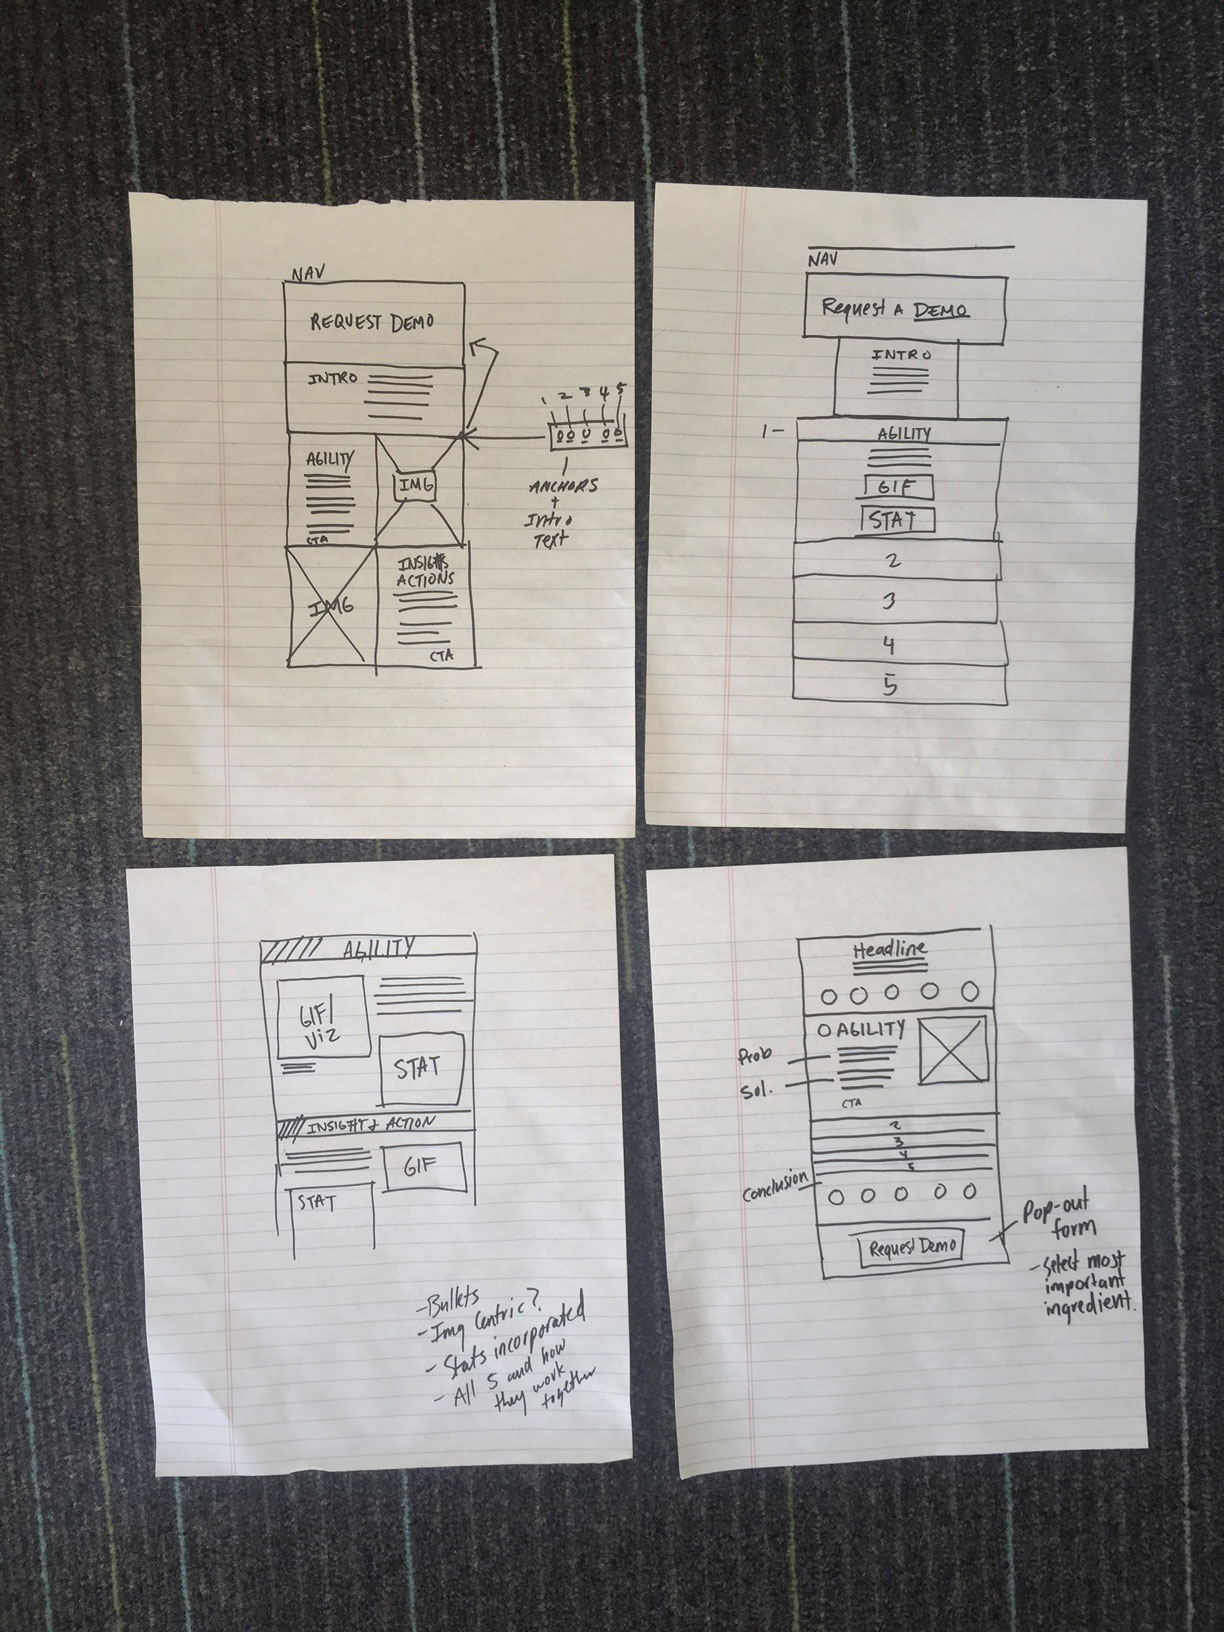 NAV
REQUEST DEMO
INTRO
1 2 3 4 5
AGILITY
IMG
CTA
ANCHORS
+
Intro
Text
IMG
INSIGHTS
ACTIONS
CTA
NAV
Request A DEMO
INTRO
1 -
AGILITY
GIF
STAT
2
3
4
5
AGILITY
GIF/
Viz
STAT
INSIGHT & ACTION
GIF
STAT
- Bullets
- Img Centric?
- Stats incorporated
- All 5 and how
they work
together
Headline
AGILITY
Prob
Sol.
CTA
2
3
4
5
Conclusion
Request Demo
Pop-out
form
- Select most
important
ingredient.